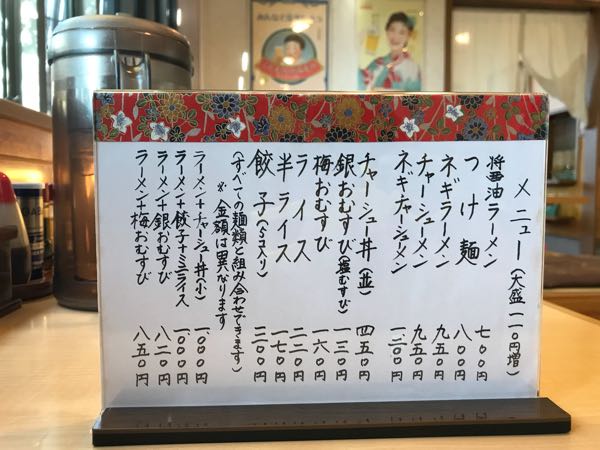 メニュー(大盛一一〇円増)
醤油ラーメン 七〇〇円
つけ麺 八〇〇円
ネギラーメン 九五〇円
チャーシューメン 九五〇円
ネギチャーシュメン 一二〇〇円
チャーシュー丼(並) 四五〇円
銀おむすび(塩むすび) 一三〇円
梅おむすび 一六〇円
ライス 二二〇円
半ライス 一七〇円
餃子(5コ入り) 三〇〇円
(すべての麺類と組み合わせできます)
※金額は異なります
ラーメン+チャーシュー丼(小) 一〇〇〇円
ラーメン+餃子+ミニライス 一〇〇〇円
ラーメン+銀おむすび 八二〇円
ラーメン+梅おむすび 八五〇円